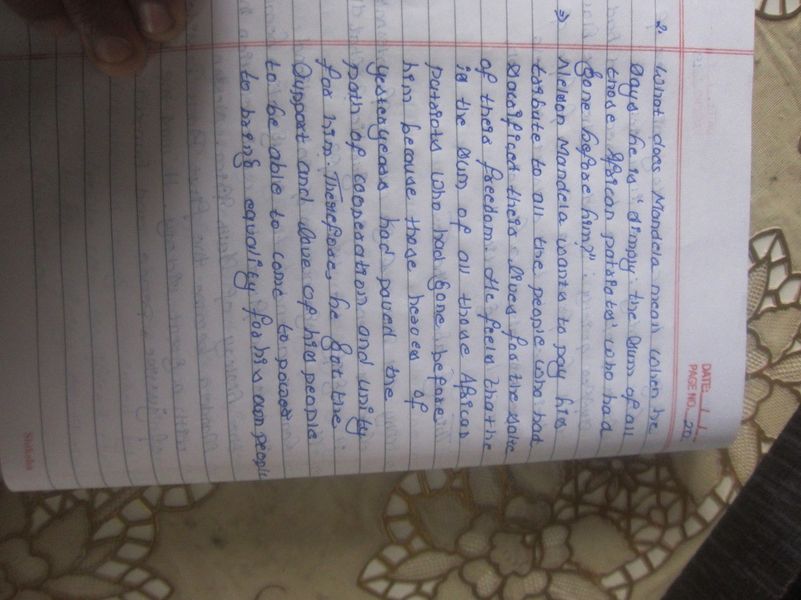 DATE: / /
PAGE NO. 20
2. What does Mandela mean when he
says he is "simply the sum of all
those African patriots" who had
gone before him?"
⇒ Nelson Mandela wants to pay his
tribute to all the people who had
sacrificed their lives for the sake
of their freedom. He feels that he
is the sum of all those African
patriots who had gone before
him because those heroes of
yesteryears had paved the
path of cooperation and unity
for him. Therefore, he got the
support and love of his people
to be able to come to power
to bring equality for his own people